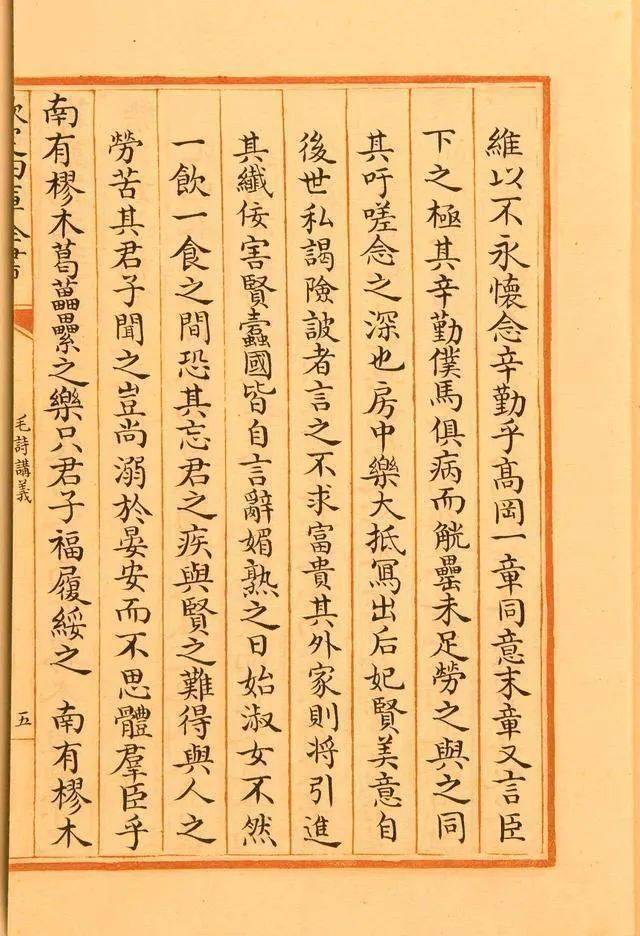 維以不永懷念辛勤乎髙岡一章同意末章又言臣
下之極其辛勤僕馬俱病而觥罍未足勞之與之同
其吁嗟念之深也房中樂大抵寫出后妃賢美意自
後世私謁險詖者言之不求富貴其外家則将引進
其纎佞害賢蠧國皆自言辭媚熟之日始淑女不然
一飲一食之間恐其忘君之疾與賢之難得與人之
勞苦其君子聞之豈尚溺於晏安而不思體羣臣乎
南有樛木葛藟纍之樂只君子福履綏之　南有樛木
毛詩講義
五